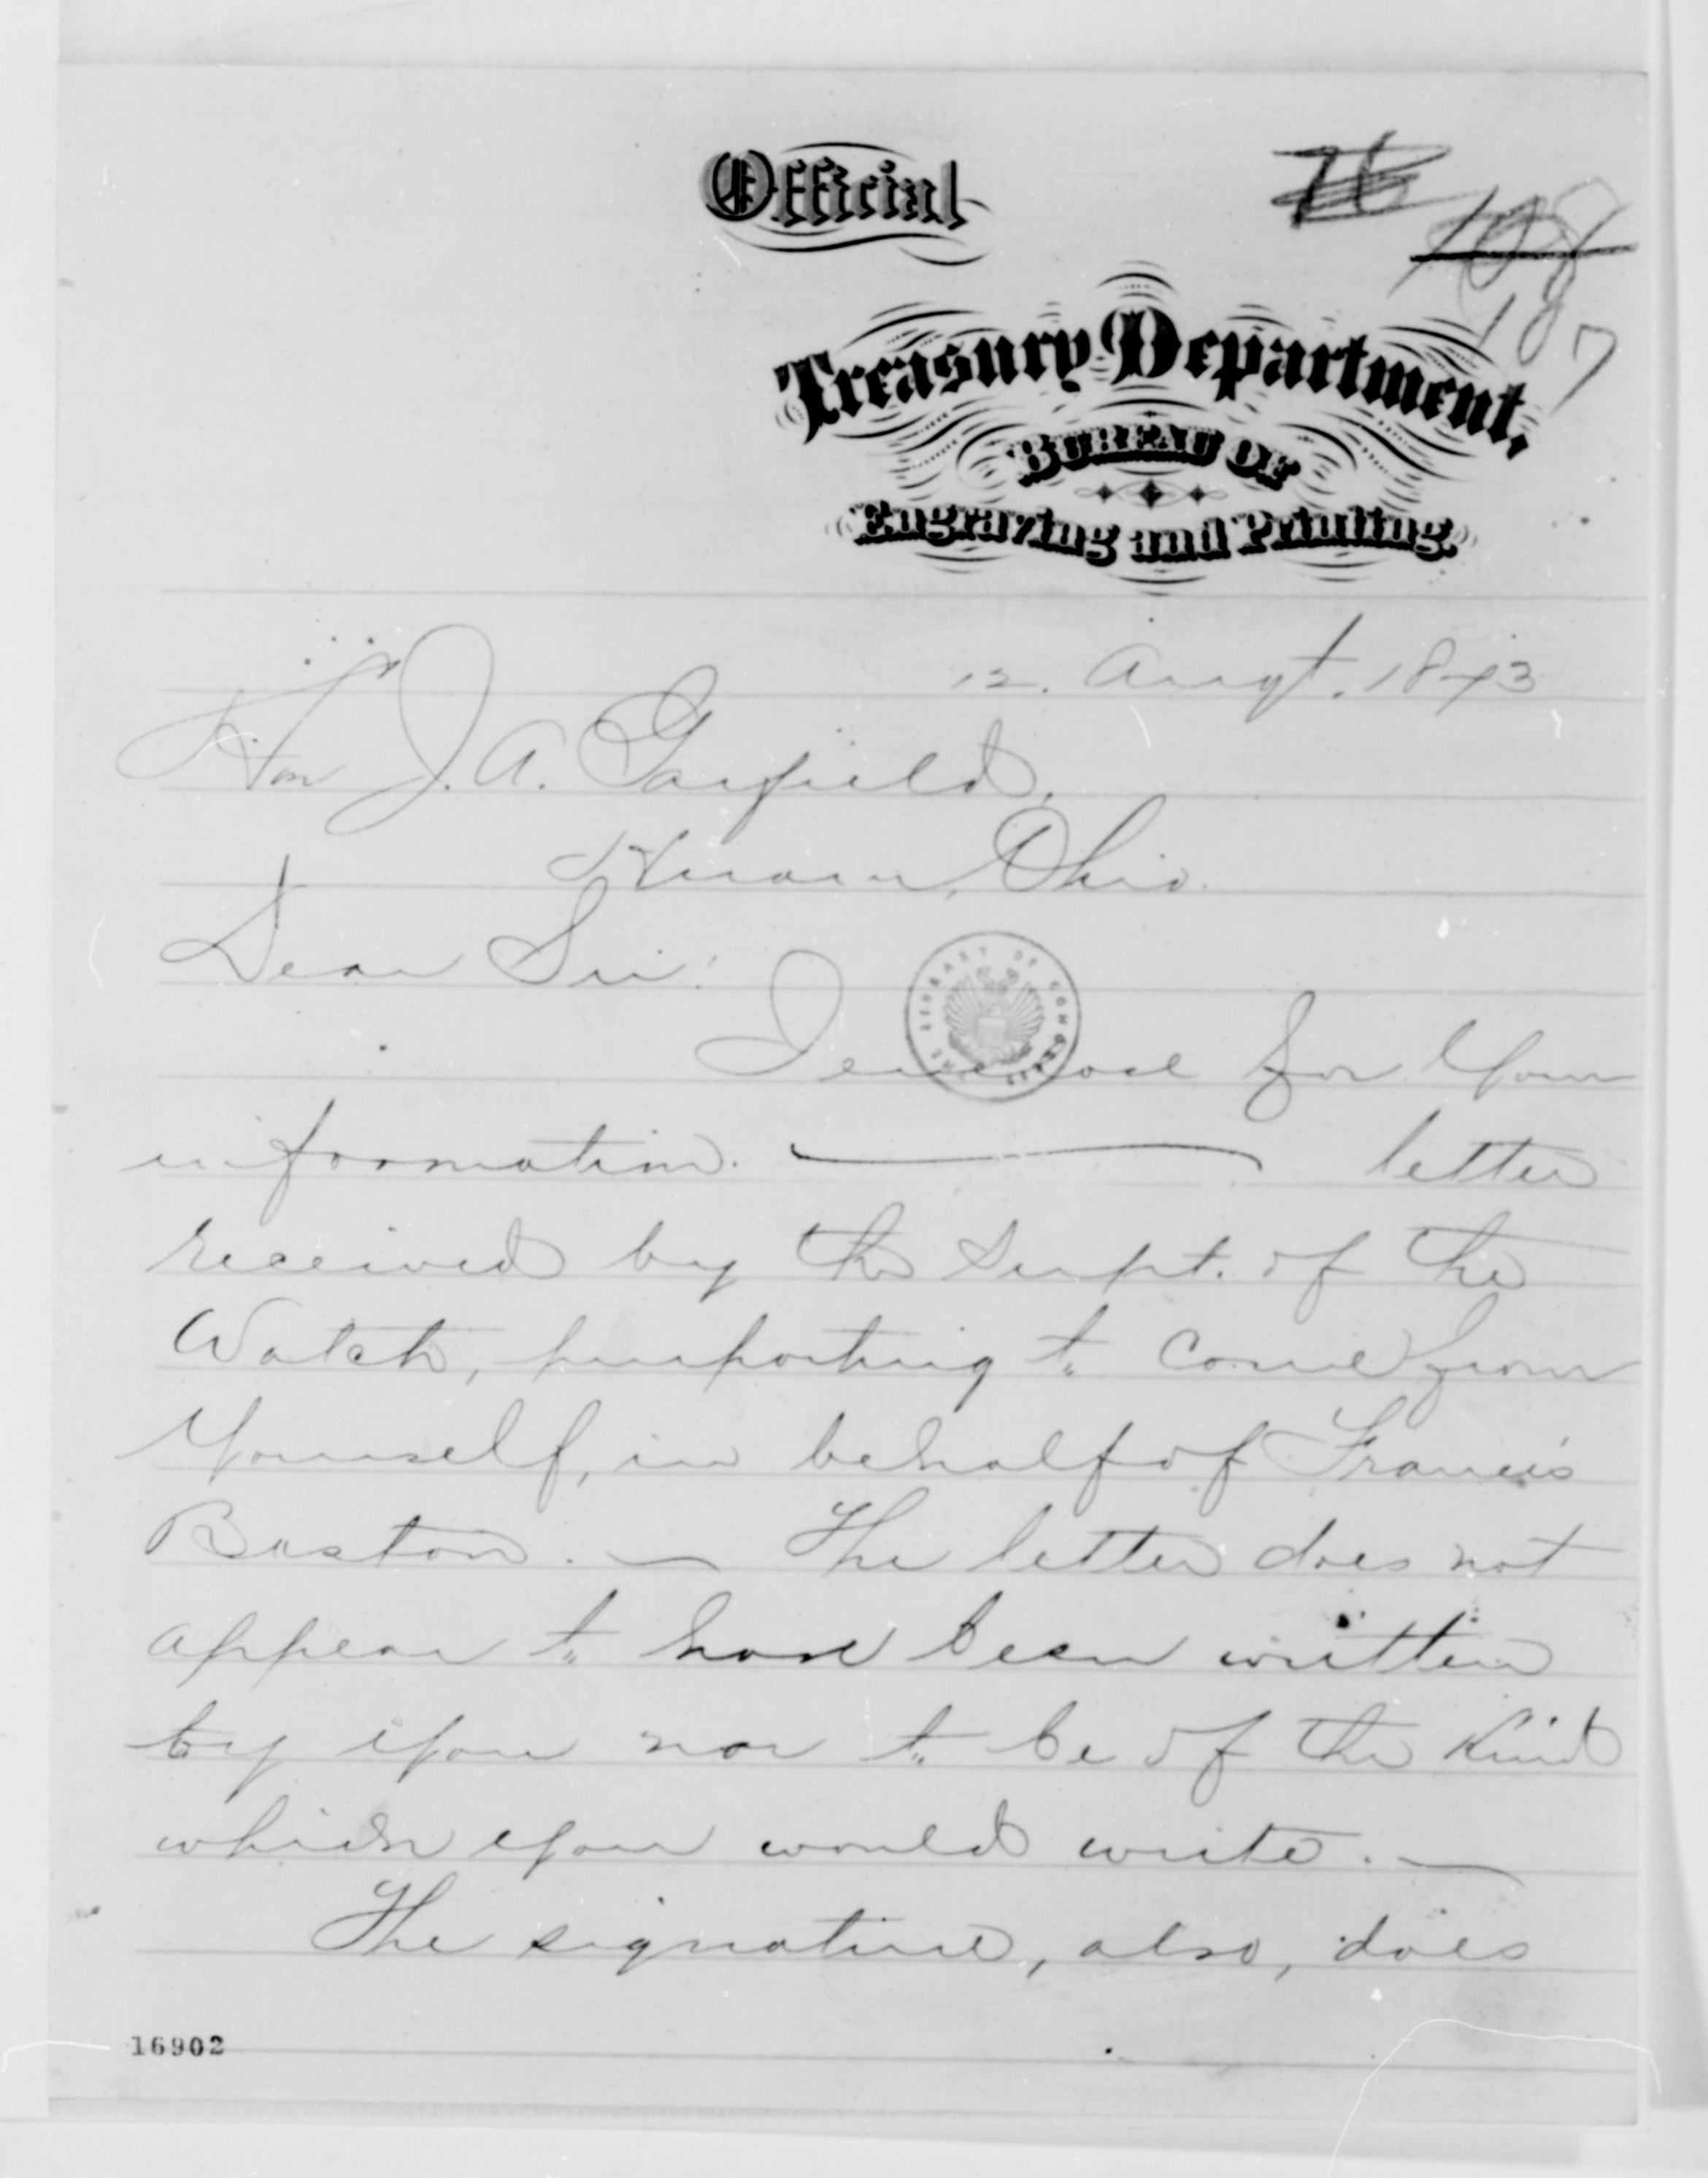 Official
76
108
187
Treasury Department,
BUREAU OF
Engraving and Printing.
12. Augt. 1873
Hon J. A. Garfield,
Hiram, Ohio.
Dear Sir:
THE LIBRARY OF CONGRESS
I enclose for your
information. — letter
received by the Supt. of the
Watch, purporting to come from
yourself, in behalf of Francis
Baston. — The letter does not
appear to have been written
by you nor to be of the kind
which you would write. —
The signature, also, does
16902